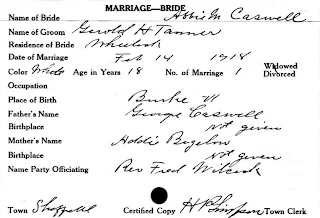 MARRIAGE—BRIDE
Name of Bride Abbie M Caswell
Name of Groom Gerold H Tanner
Residence of Bride Wheelock
Date of Marriage Feb 14 1914
Color White Age in Years 18 No. of Marriage 1 Widowed Divorced
Occupation
Place of Birth Burke Vt
Father's Name George Caswell
Birthplace Not given
Mother's Name Addie Bigelow
Birthplace Not given
Name Party Officiating Rev Fred Wilcock
Town Sheffield Certified Copy H R Simpson Town Clerk